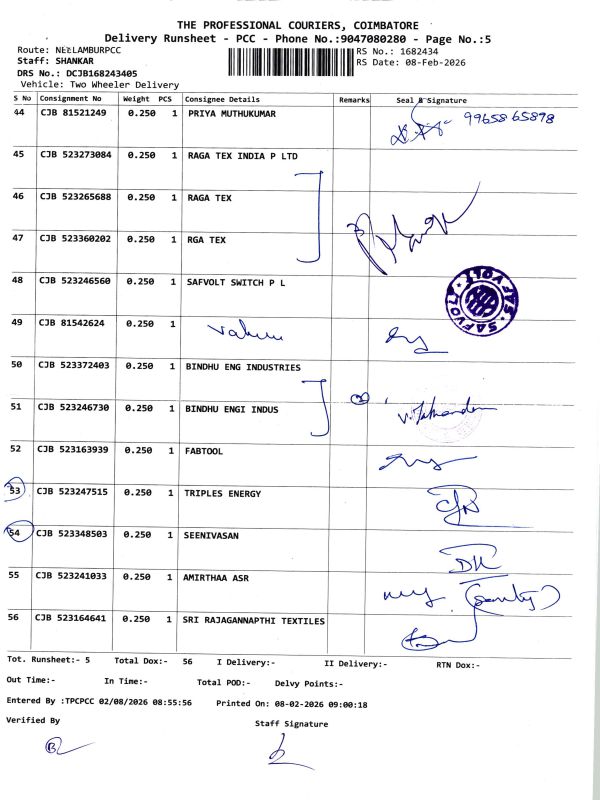 THE PROFESSIONAL COURIERS, COIMBATORE
Delivery Runsheet - PCC - Phone No.:9047080280 - Page No.:5
Route: NEELAMBURPCC RS No.: 1682434
Staff: SHANKAR RS Date: 08-Feb-2026
DRS No.: DCJB168243405
Vehicle: Two Wheeler Delivery
S No Consignment No Weight PCS Consignee Details Remarks Seal & Signature
44 CJB 81521249 0.250 1 PRIYA MUTHUKUMAR 99658 65898
45 CJB 523273084 0.250 1 RAGA TEX INDIA P LTD
46 CJB 523265688 0.250 1 RAGA TEX
47 CJB 523360202 0.250 1 RGA TEX
48 CJB 523246560 0.250 1 SAFVOLT SWITCH P L SAFVOLT SAFVOLT
49 CJB 81542624 0.250 1
50 CJB 523372403 0.250 1 BINDHU ENG INDUSTRIES
51 CJB 523246730 0.250 1 BINDHU ENGI INDUS
52 CJB 523163939 0.250 1 FABTOOL
53 CJB 523247515 0.250 1 TRIPLES ENERGY
54 CJB 523348503 0.250 1 SEENIVASAN
55 CJB 523241033 0.250 1 AMIRTHAA ASR
56 CJB 523164641 0.250 1 SRI RAJAGANNAPTHI TEXTILES
Tot. Runsheet:- 5 Total Dox:- 56 I Delivery:- II Delivery:- RTN Dox:-
Out Time:- In Time:- Total POD:- Delvy Points:-
Entered By :TPCPCC 02/08/2026 08:55:56 Printed On: 08-02-2026 09:00:18
Verified By Staff Signature